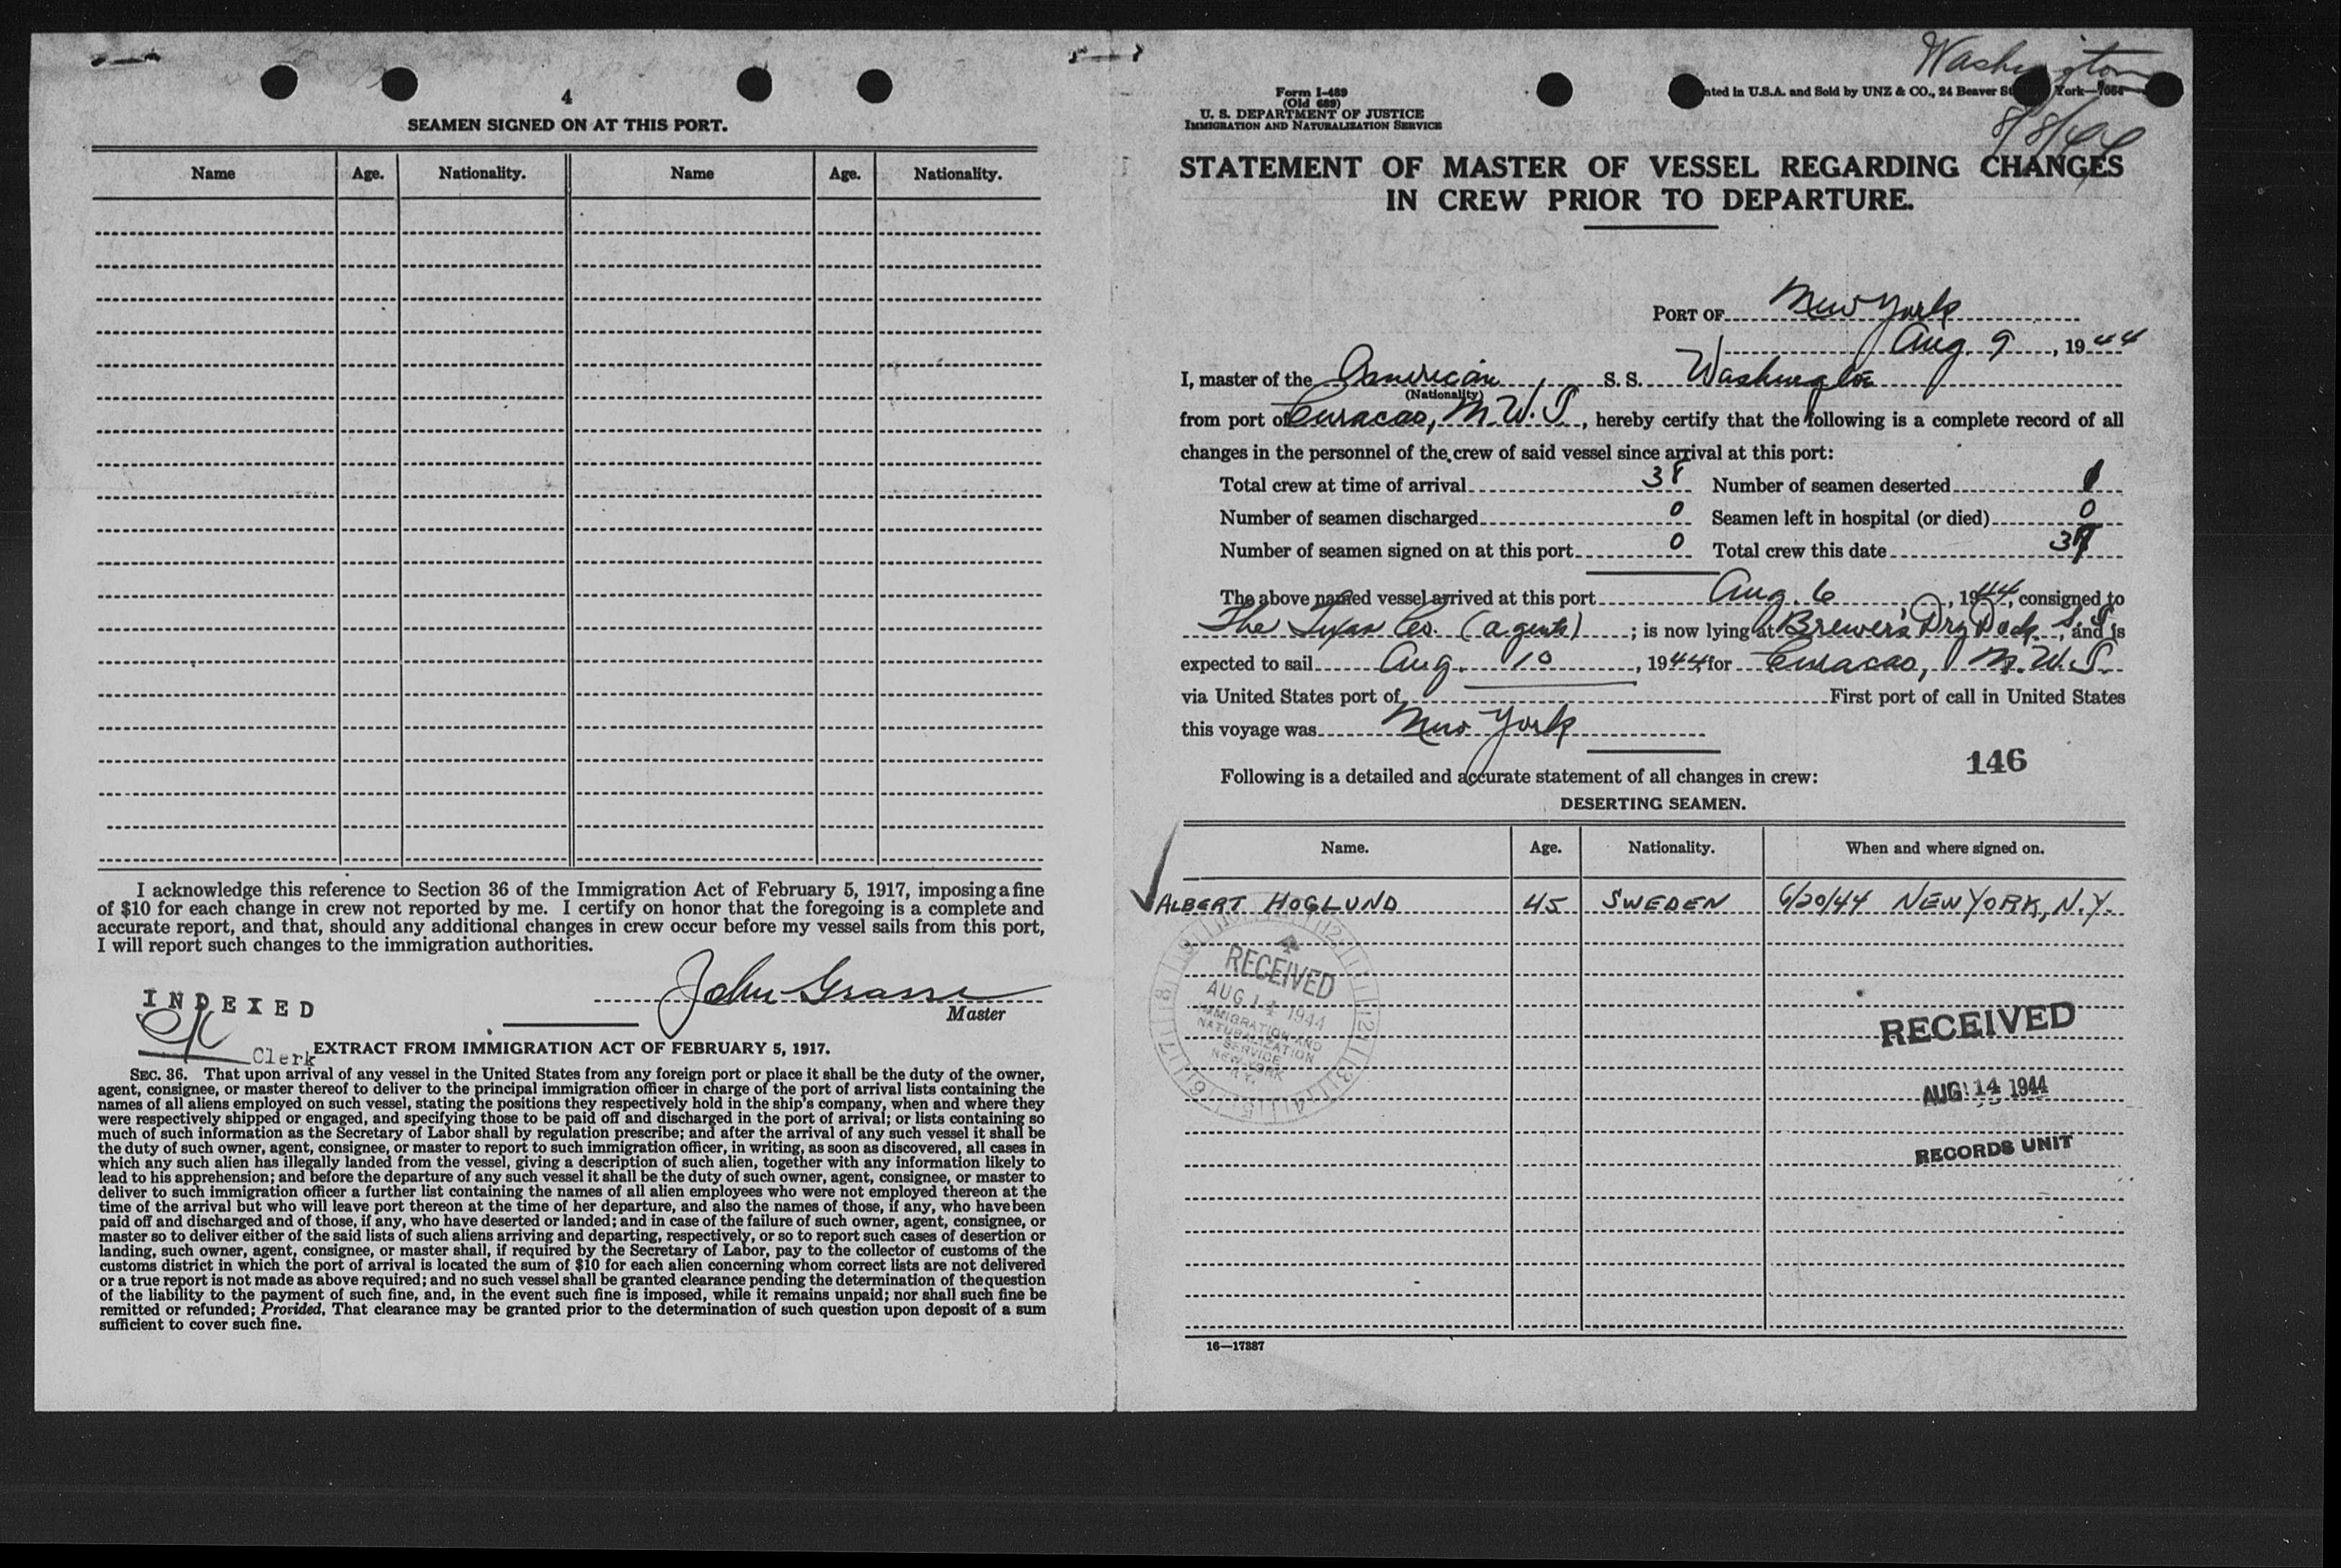 4
SEAMEN SIGNED ON AT THIS PORT.
Name Age. Nationality. Name Age. Nationality.
I acknowledge this reference to Section 36 of the Immigration Act of February 5, 1917, imposing a fine
of $10 for each change in crew not reported by me. I certify on honor that the foregoing is a complete and
accurate report, and that, should any additional changes in crew occur before my vessel sails from this port,
I will report such changes to the immigration authorities.
John Grasse
Master
INDEXED
Clerk
EXTRACT FROM IMMIGRATION ACT OF FEBRUARY 5, 1917.
SEC. 36. That upon arrival of any vessel in the United States from any foreign port or place it shall be the duty of the owner,
agent, consignee, or master thereof to deliver to the principal immigration officer in charge of the port of arrival lists containing the
names of all aliens employed on such vessel, stating the positions they respectively hold in the ship's company, when and where they
were respectively shipped or engaged, and specifying those to be paid off and discharged in the port of arrival; or lists containing so
much of such information as the Secretary of Labor shall by regulation prescribe; and after the arrival of any such vessel it shall be
the duty of such owner, agent, consignee, or master to report to such immigration officer, in writing, as soon as discovered, all cases in
which any such alien has illegally landed from the vessel, giving a description of such alien, together with any information likely to
lead to his apprehension; and before the departure of any such vessel it shall be the duty of such owner, agent, consignee, or master to
deliver to such immigration officer a further list containing the names of all alien employees who were not employed thereon at the
time of the arrival but who will leave port thereon at the time of her departure, and also the names of those, if any, who have been
paid off and discharged and of those, if any, who have deserted or landed; and in case of the failure of such owner, agent, consignee, or
master so to deliver either of the said lists of such aliens arriving and departing, respectively, or so to report such cases of desertion or
landing, such owner, agent, consignee, or master shall, if required by the Secretary of Labor, pay to the collector of customs of the
customs district in which the port of arrival is located the sum of $10 for each alien concerning whom correct lists are not delivered
or a true report is not made as above required; and no such vessel shall be granted clearance pending the determination of the question
of the liability to the payment of such fine, and, in the event such fine is imposed, while it remains unpaid; nor shall such fine be
remitted or refunded; Provided, That clearance may be granted prior to the determination of such question upon deposit of a sum
sufficient to cover such fine.
Washington
8/8/44
Form I-489
(Old 689)
U. S. DEPARTMENT OF JUSTICE
IMMIGRATION AND NATURALIZATION SERVICE
nted in U.S.A. and Sold by UNZ & CO., 24 Beaver St York
STATEMENT OF MASTER OF VESSEL REGARDING CHANGES
IN CREW PRIOR TO DEPARTURE.
PORT OF New York
Aug. 9, 1944
I, master of the American S. S. Washington
(Nationality)
from port of Curacao, N.W.I., hereby certify that the following is a complete record of all
changes in the personnel of the crew of said vessel since arrival at this port:
Total crew at time of arrival 38 Number of seamen deserted 1
Number of seamen discharged 0 Seamen left in hospital (or died) 0
Number of seamen signed on at this port 0 Total crew this date 37
The above named vessel arrived at this port Aug. 6, 1944, consigned to
The Texas Co. (agents); is now lying at Brewer's Dry Dock, S.I., and is
expected to sail Aug. 10, 1944, for Curacao, N.W.I.
via United States port of First port of call in United States
this voyage was New York
146
Following is a detailed and accurate statement of all changes in crew:
DESERTING SEAMEN.
Name. Age. Nationality. When and where signed on.
ALBERT HOGLUND 45 SWEDEN 6/20/44 NEW YORK, N.Y.
RECEIVED
AUG 14 1944
IMMIGRATION AND
NATURALIZATION
SERVICE
NEW YORK
N.Y.
RECEIVED
AUG 14 1944
RECORDS UNIT
16—17387